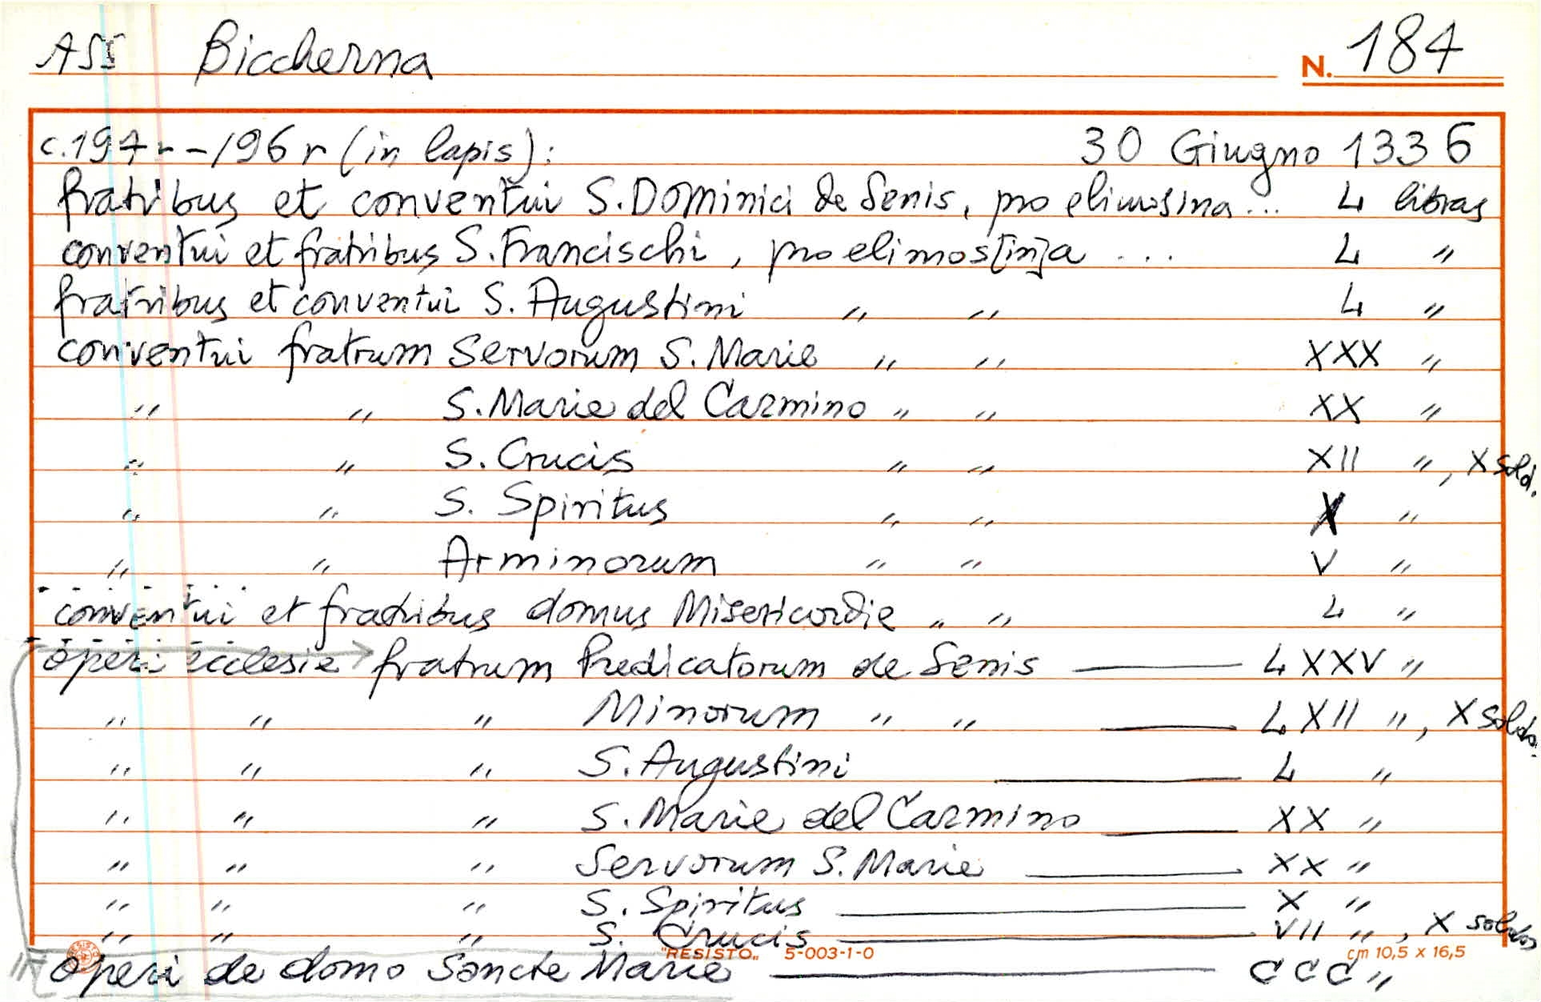 ASS Biccherna N. 184
c.197r-196r (in lapis): 30 Giugno 1336
fratribus et conventui S. Dominici de Senis, pro elimosina... L libras
conventui et fratribus S. Francischi, pro elimos[in]a ... L "
fratribus et conventui S. Augustini " " L "
conventui fratrum Servorum S. Marie " " XXX "
" " S. Marie del Carmino " " XX "
" " S. Crucis " " XII ", X sold.
" " S. Spiritus " " X "
" " Arminorum " " V "
conventui et fratribus domus Misericordie " " L "
operi ecclesie fratrum Predicatorum de Senis — LXXV "
" " " Minorum " " — LXII ", X soldos
" " " S. Augustini — L "
" " " S. Marie del Carmino — XX "
" " " Servorum S. Marie — XX "
" " " S. Spiritus — X "
" " " S. Crucis — VII ", X soldos
operi de domo Sancte Marie — CCC "
"RESISTO" 5-003-1-0 cm 10,5 x 16,5